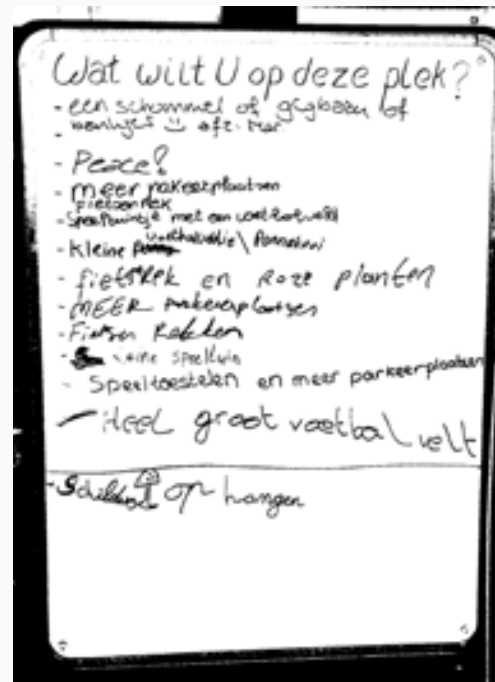 Wat wilt U op deze plek?
- een schommel of glybaan of
- bankjes
- Peace!
- meer pakeerplaatsen
fietsenrek
- Speeltuintje met een voetbalveld
- Kleine voetbalveldje \ Pannakooi
- fietsrek en Roze planten
- MEER parkeerplaatsen
- Fietsen Rekken
- kleine speeltuin
- Speeltoestelen en meer parkeerplaatsen
- Heel groot voetbal velt
- op hangen